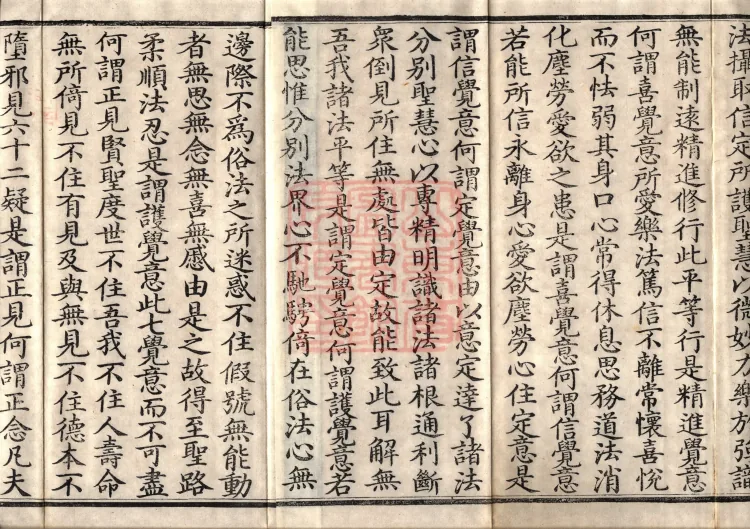 法攝取信定所護聖慧以微妙力樂於強
無能制遠精進修行此平等行是精進覺意
何謂喜覺意所愛樂法篤信不離常懷喜悅
而不怯弱其身口心常得休息思務道法消
化塵勞愛欲之患是謂喜覺意何謂信覺意
若能所信永離身心愛欲塵勞心住定意是
謂信覺意何謂定覺意由以意定達了諸法
分別聖慧心以專精明識諸法諸根通利斷
衆倒見所住無處皆由定故能致此耳解無
吾我諸法平等是謂定覺意何謂護覺意若
能思惟分別法界心不馳騁倚在俗法心無
邊際不爲俗法之所迷惑不住假號無能動
者無思無念無喜無慼由是之故得至聖路
柔順法忍是謂護覺意此七覺意而不可盡
何謂正見賢聖度世不住吾我不住人壽命
無所倚見不住有見及與無見不住德本不
墮邪見六十二疑是謂正見何謂正念凡夫